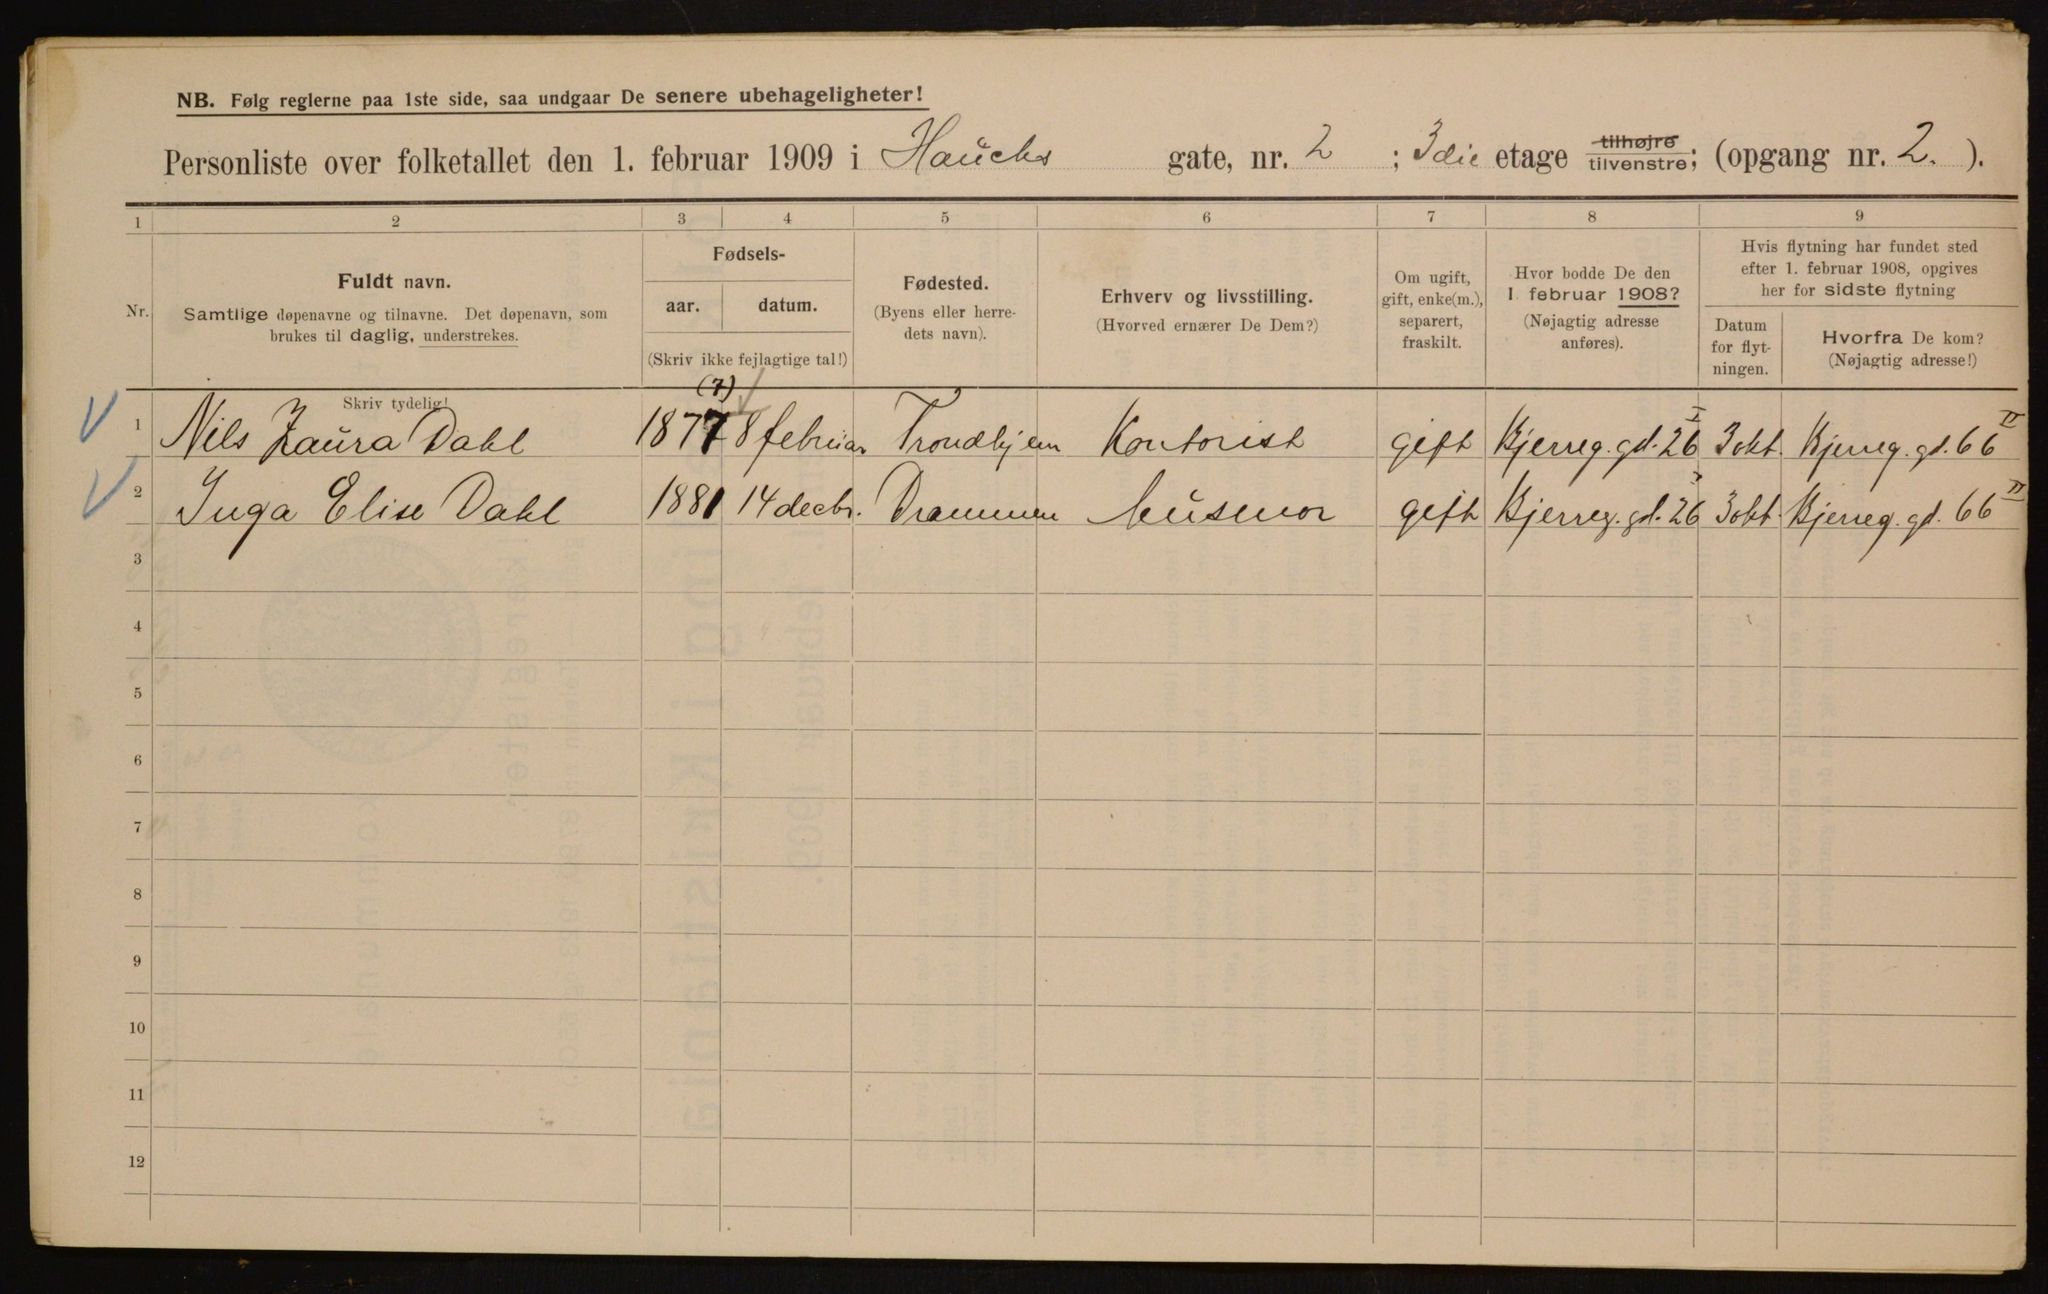 NB. Følg reglerne paa 1ste side, saa undgaar De senere ubehageligheter!
Personliste over folketallet den 1. februar 1909 i Hauchs gate, nr. 2 ; 3die etage tilhøjre tilvenstre; (opgang nr. 2. ).
1 2 3 4 5 6 7 8 9
Nr.
Fuldt navn.
Samtlige døpenavne og tilnavne. Det døpenavn, som
brukes til daglig, understrekes.
Skriv tydelig!
Fødsels-
aar. datum.
(Skriv ikke fejlagtige tal!)
Fødested.
(Byens eller herre-
dets navn).
Erhverv og livsstilling.
(Hvorved ernærer De Dem?)
Om ugift,
gift, enke(m.),
separert,
fraskilt.
Hvor bodde De den
1. februar 1908?
(Nøjagtig adresse
anføres).
Hvis flytning har fundet sted
efter 1. februar 1908, opgives
her for sidste flytning
Datum
for flyt-
ningen.
Hvorfra De kom?
(Nøjagtig adresse!)
(7)
1 Nils Zaura Dahl 1877 8 februar Trondhjem Kontorist gift Bjerreg. gd. 26 I 3 okt. Bjerreg. gd. 66 II
2 Inga Elise Dahl 1881 14 decbr. Drammen husmor gift Bjerreg. gd. 26 I 3 okt. Bjerreg. gd. 66 II
3
4
5
6
7
8
9
10
11
12